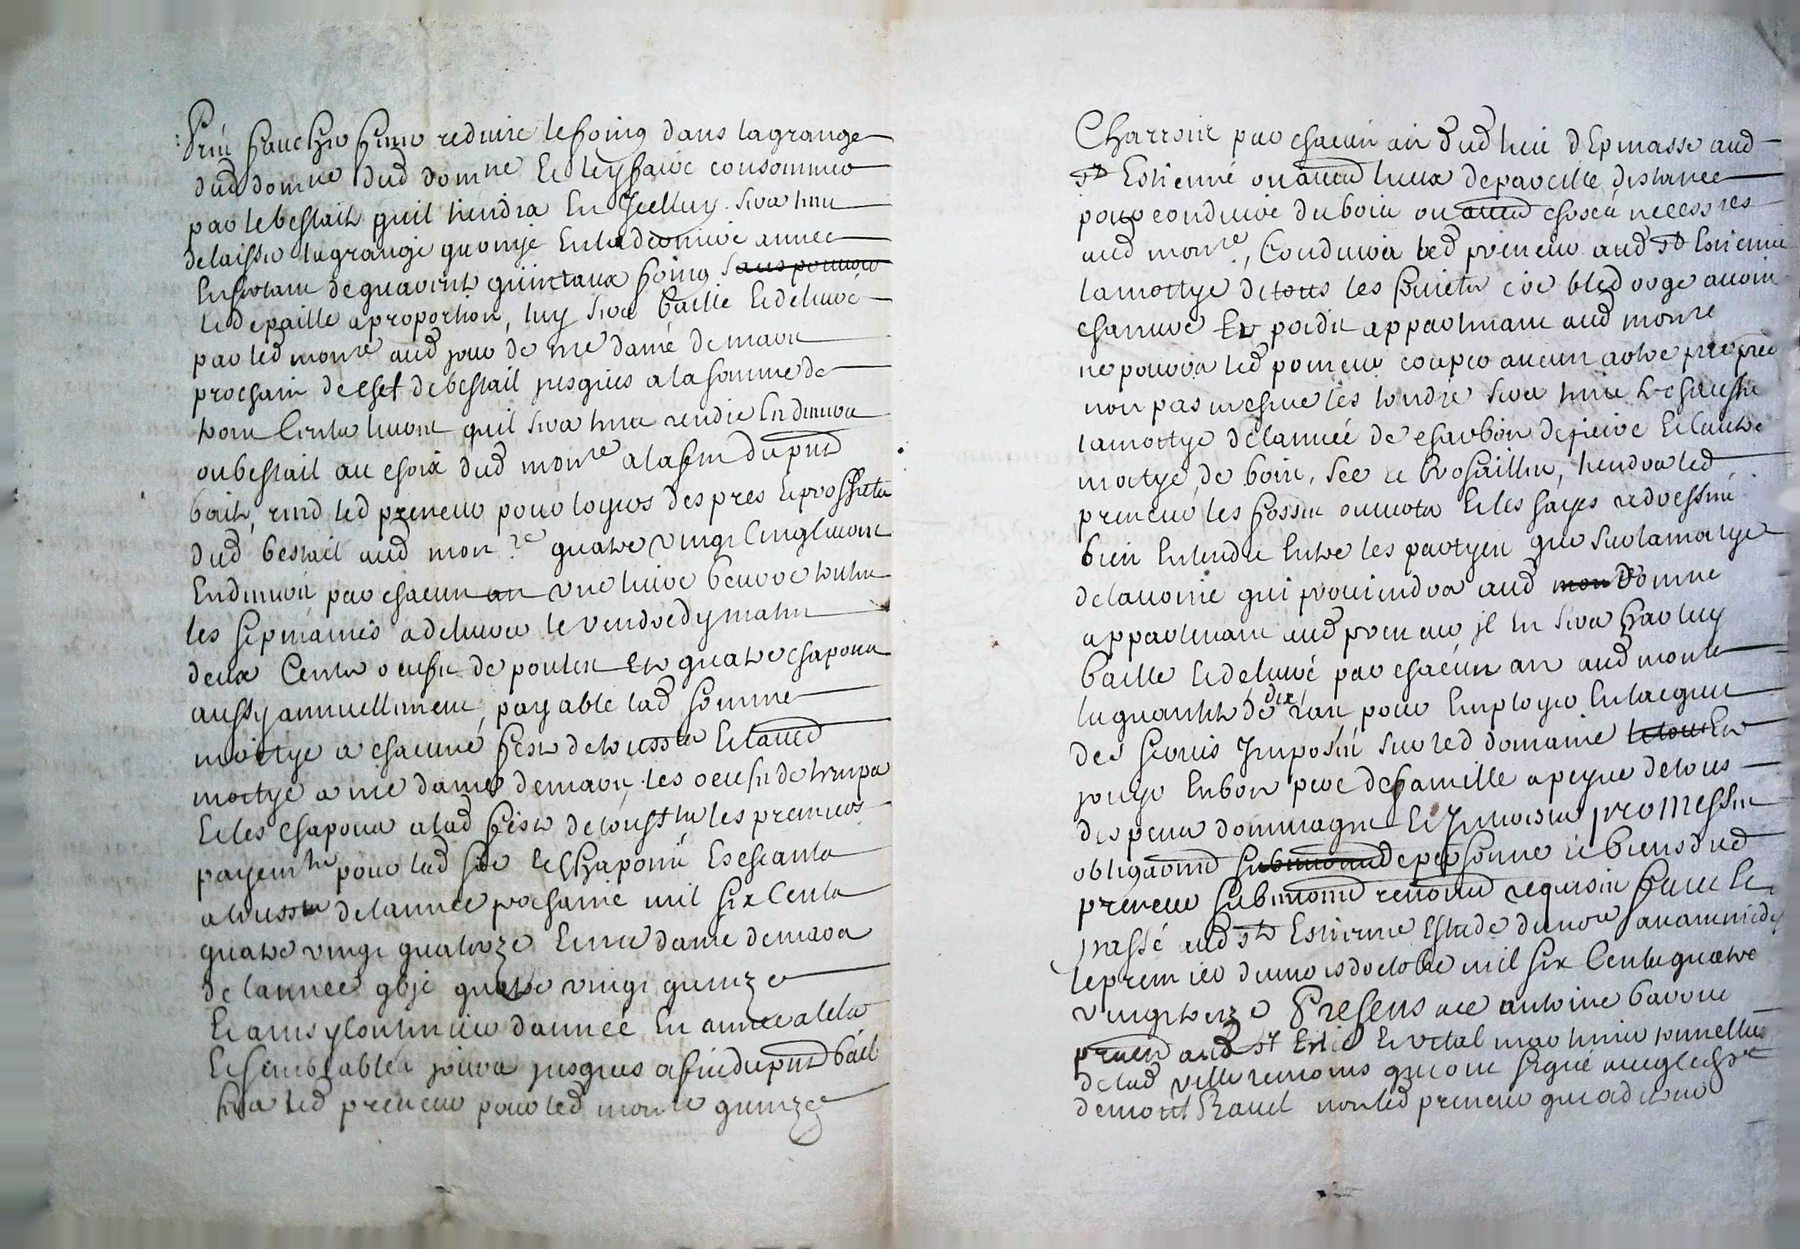 faucher fener reduire le foing dans la grange
dud domne dud domne et ley faire consommer
par le bestail quil tiendra en Icelluy sera tenu
delaisser la grange garnye en la derniere année
de quarente quintaux foing sans pouvoir
et de paille a proportion, luy sera baillé et delivré
par led monre aud jour de nre dame de mars
prochain de chef de bestail jusques a la somme de
livres quil sera tenu rendre en deniers
ou bestail au choix dud monre a la fin du pnt
bail, led preneur pour loyers des pres et proffits
dud bestail aud monre quatre vingt cinq livres
en deniers par chacun an une livre beurre toutes
les sepmaines a delivrer le vendredy matin
deux cents oeufs de poules et quatre chapons
aussy annuellement, payable lad somme
moittye a chacune feste de toussts et laud
moitye a nre dame de mars les oeufs de temps
et les chapons a lad feste de toussts les premiers
payemts pour lad et chapons escheants
a toussts de lannée prochaine mil six cents
quatre vingt quatorze et nre dame de mars
de lannée quatre vingt quinze
et ainsy continuer dannée en année a tels
et semblables jours jusques a fin du pnt bail
fera led preneur pour led monre quinze
Charrois par chacun an dud lieu dEpinasse aud
st Estienne ou aud lieux de pareille distance
pour conduire du bois ou aud choses necessres
aud monre, Conduira led preneur aud st Estienne
la moitye de tous les fruicts bled orge avoine
chanvre et appartenant aud monre
ne pourra led preneur couper aucun arbre
non pas mesme les tondre sera tenu le chauffer
la moitye de lannée de charbon de pierre et lautre
moitye de bois sec et brosailles, tiendra led
preneur les fossés ouverts et les hayes redressées
bien entendu entre les partyes que sur la moitye
de lavoine qui proviendra aud mon domne
appartenant aud preneur il en sera par luy
baillé et delivré par chacun an aud monre
la quantité de dix ras pour employer en lacquit
des servis Imposés sur led domaine le tout en
jouyr en bon pere de famille a peyne de tous
despens dommages et Interests promesses
obligaõns submiõns de personne et biens dud
preneur submiõns renonõns requises fait et
passé aud st Estienne Estude du nore avant midy
le premier du mois doctobre mil six cents quatre
vingt treze Presens me antoine
aud st Estie et vital tonnellier
de lad ville temoins qui ont signé avec led sr
de mont Ravel non led preneur